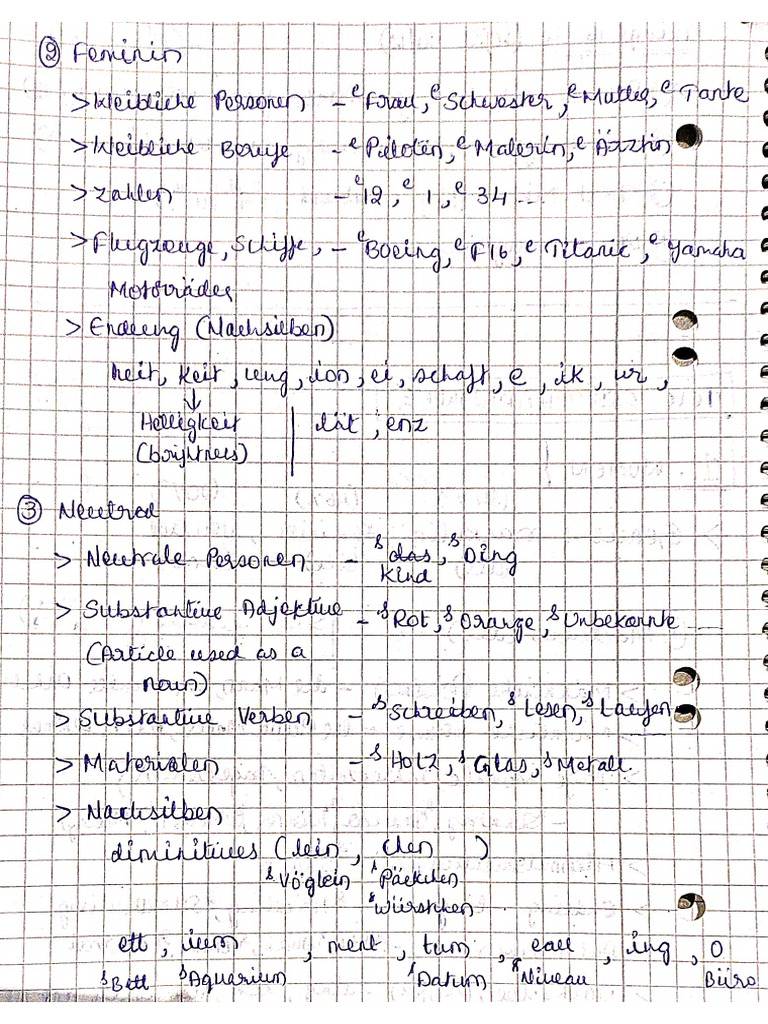 ② Feminin
> Weibliche Personen - ᵉFrau, ᵉSchwester, ᵉMutter, ᵉTante
> Weibliche Berufe - ᵉPilotin, ᵉMalerin, ᵉÄrztin
> Zahlen - ᵉ12, ᵉ1, ᵉ34 ...
> Flugzeuge, Schiffe, - ᵉBoeing, ᵉF16, ᵉTitanic, ᵉYamaha
Motorräder
> Endung (Nachsilben)
heit, keit, ung, ion, ei, schaft, e, ik, ur,
↓
Helligkeit | tät, enz
(brightness)
③ Neutral
> Neutrale Personen - ˢdas, ˢDing
Kind
> Substantive Adjektive - ˢRot, ˢOrange, ˢUnbekannte ....
(Article used as a
noun)
> Substantive Verben - ˢSchreiben, ˢLesen, ˢLaufen
> Materialen - ˢHolz, ˢGlas, ˢMetall
> Nachsilben
diminitives (lein, chen )
ˢVöglein ˢPäckchen
ˢWürstchen
ett, ium, ment, tum, eau, ing, o
ˢBett ˢAquarium ˢDatum ˢNiveau Büro